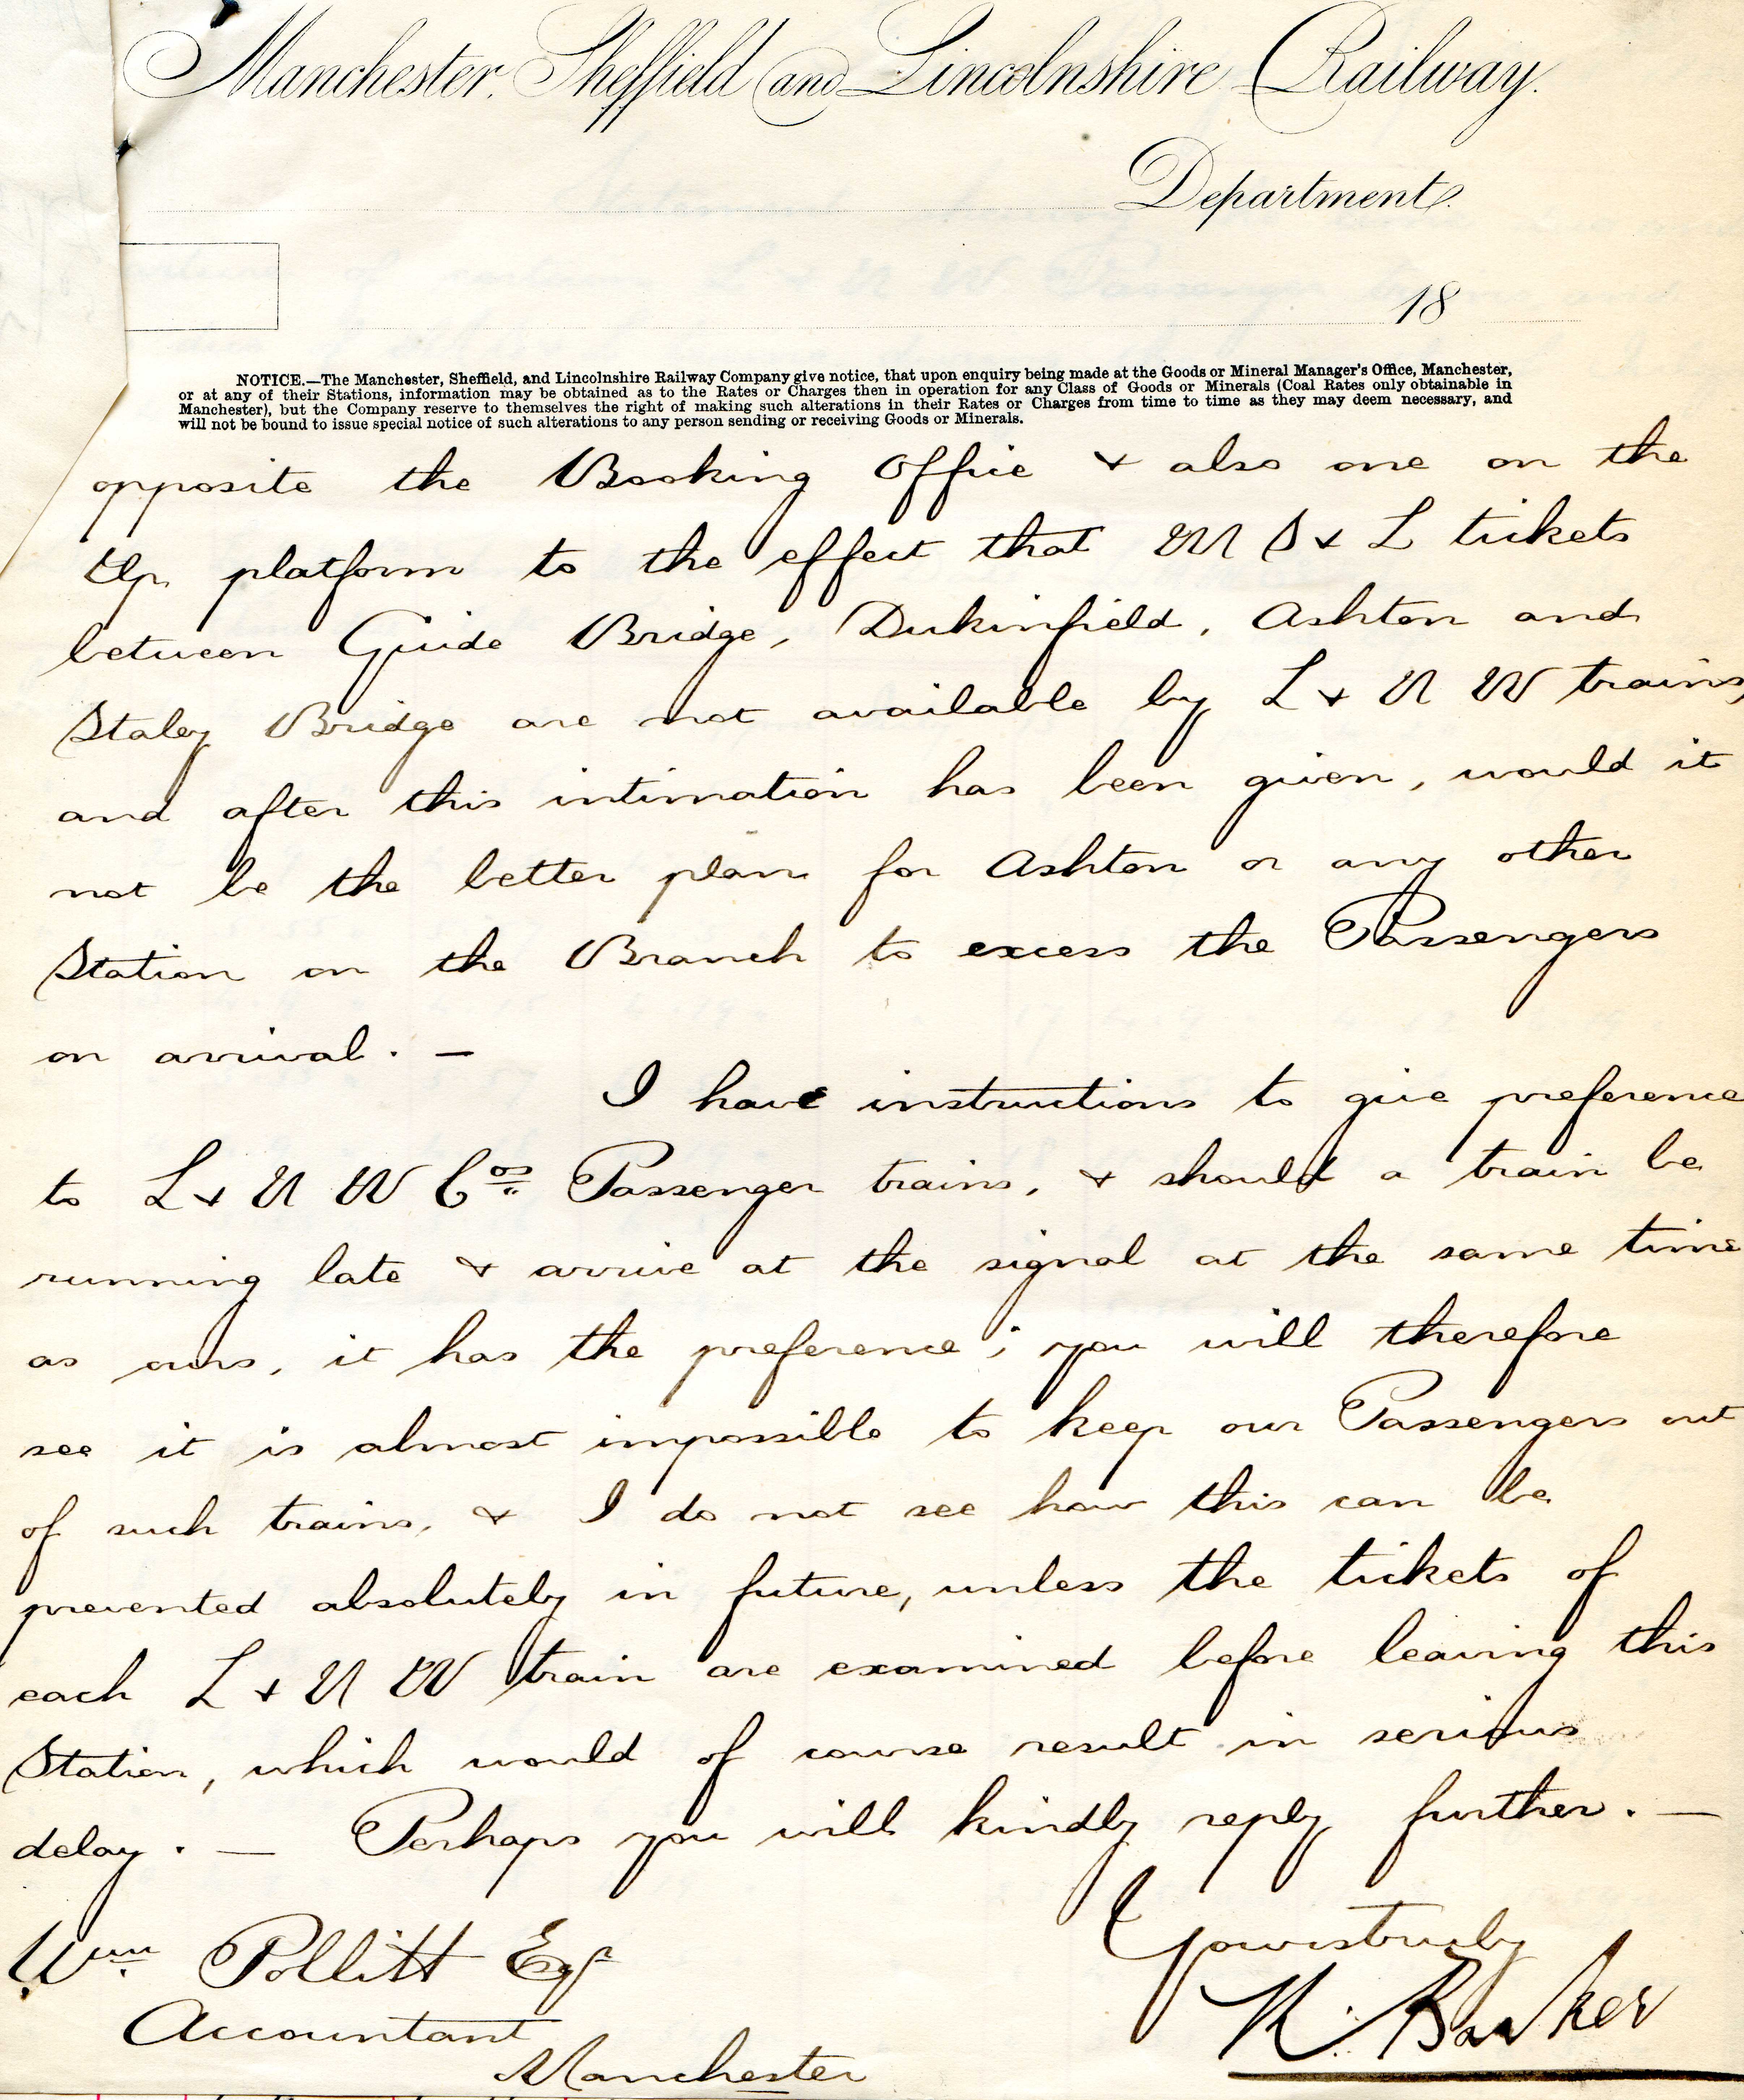 Manchester, Sheffield and Lincolnshire Railway.
Department.
18
NOTICE.—The Manchester, Sheffield, and Lincolnshire Railway Company give notice, that upon enquiry being made at the Goods or Mineral Manager's Office, Manchester,
or at any of their Stations, information may be obtained as to the Rates or Charges then in operation for any Class of Goods or Minerals (Coal Rates only obtainable in
Manchester), but the Company reserve to themselves the right of making such alterations in their Rates or Charges from time to time as they may deem necessary, and
will not be bound to issue special notice of such alterations to any person sending or receiving Goods or Minerals.
opposite the Booking Office & also one on the
Up platform to the effect that M S & L tickets
between Guide Bridge, Dukinfield, Ashton and
Staley Bridge are not available by L & N W trains,
and after this intimation has been given, would it
not be the better plan for Ashton or any other
Station on the Branch to excess the Passengers
on arrival. —
I have instructions to give preference
to L & N W Cos Passenger trains, & should a train be
running late & arrive at the signal at the same time
as ours, it has the preference; you will therefore
see it is almost impossible to keep our Passengers out
of such trains, & I do not see how this can be
prevented absolutely in future, unless the tickets of
each L & N W train are examined before leaving this
Station, which would of course result in serious
delay. — Perhaps you will kindly reply further. —
Yours truly
Wm Pollitt Esqr
R. Barker
Accountant
Manchester